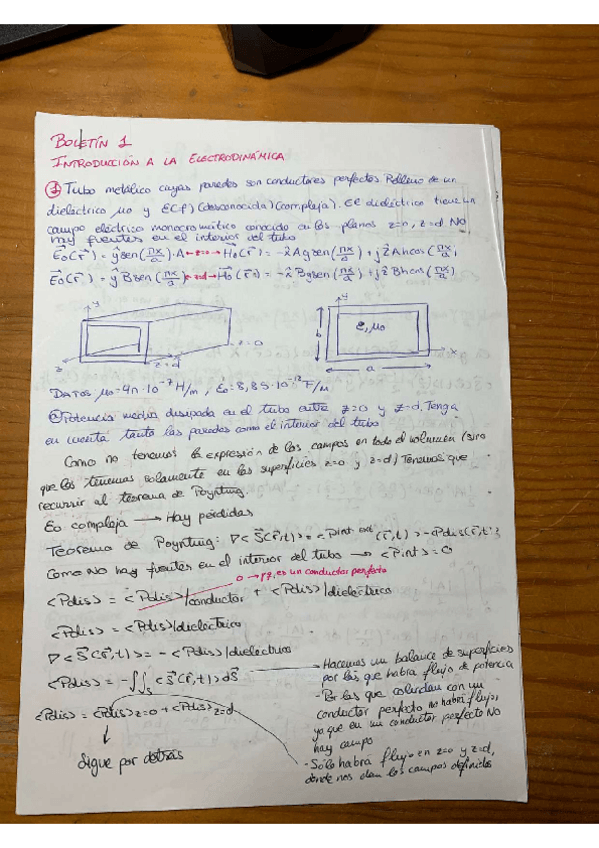 BOLETÍN 1
INTRODUCCIÓN A LA ELECTRODINÁMICA
① Tubo metálico cuyas paredes son conductores perfectos. Relleno de un
dieléctrico μ0 y E(r) (desconocida) (compleja). El dieléctrico tiene un
campo eléctrico monocromático conocido en los planos z=0, z=d. No
hay fuentes en el interior del tubo
E0(r) = ŷ sen(πx/a)·A ←z=0→ H0(r) = -x̂ A g sen(πx/a) + jẑ A h cos(πx/a)
E0(r) = ŷ B sen(πx/a) ←z=d→ H0(r) = -x̂ B g sen(πx/a) + jẑ B h cos(πx/a)
y
z=0
z
z=d
y
b
ε, μ0
x
a
DATOS μ0=4π·10^-7 H/m, ε0=8,85·10^-12 F/m
ⓐ Potencia media disipada en el tubo entre z=0 y z=d. Tenga
en cuenta tanto las paredes como el interior del tubo
Como no tenemos la expresión de los campos en todo el volumen (sino
que los tenemos solamente en las superficies z=0 y z=d) Tenemos que
recurrir al teorema de Poynting.
Eo compleja → Hay pérdidas
Teorema de Poynting: ∇<S(r,t)> = <Pint (r,t)> - <Pdis(r,t)>
Como No hay fuentes en el interior del tubo → <Pint> = 0
0 → pq. es un conductor perfecto
<Pdis> = <Pdis>|conductor + <Pdis>|dieléctrico
<Pdis> = <Pdis>|dieléctrico
∇<S(r,t)> = - <Pdis>|dieléctrico
<Pdis> = -∬s <S(r,t)> dS
<Pdis> = <Pdis>z=0 + <Pdis>z=d
Sigue por detrás
- Hacemos un balance de superficies
por las que habrá flujo de potencia
- Por las que colindan con un
conductor perfecto no habrá flujo,
ya que en un conductor perfecto NO
hay campo
- Sólo habrá flujo en z=0 y z=d,
donde nos dan los campos definidos